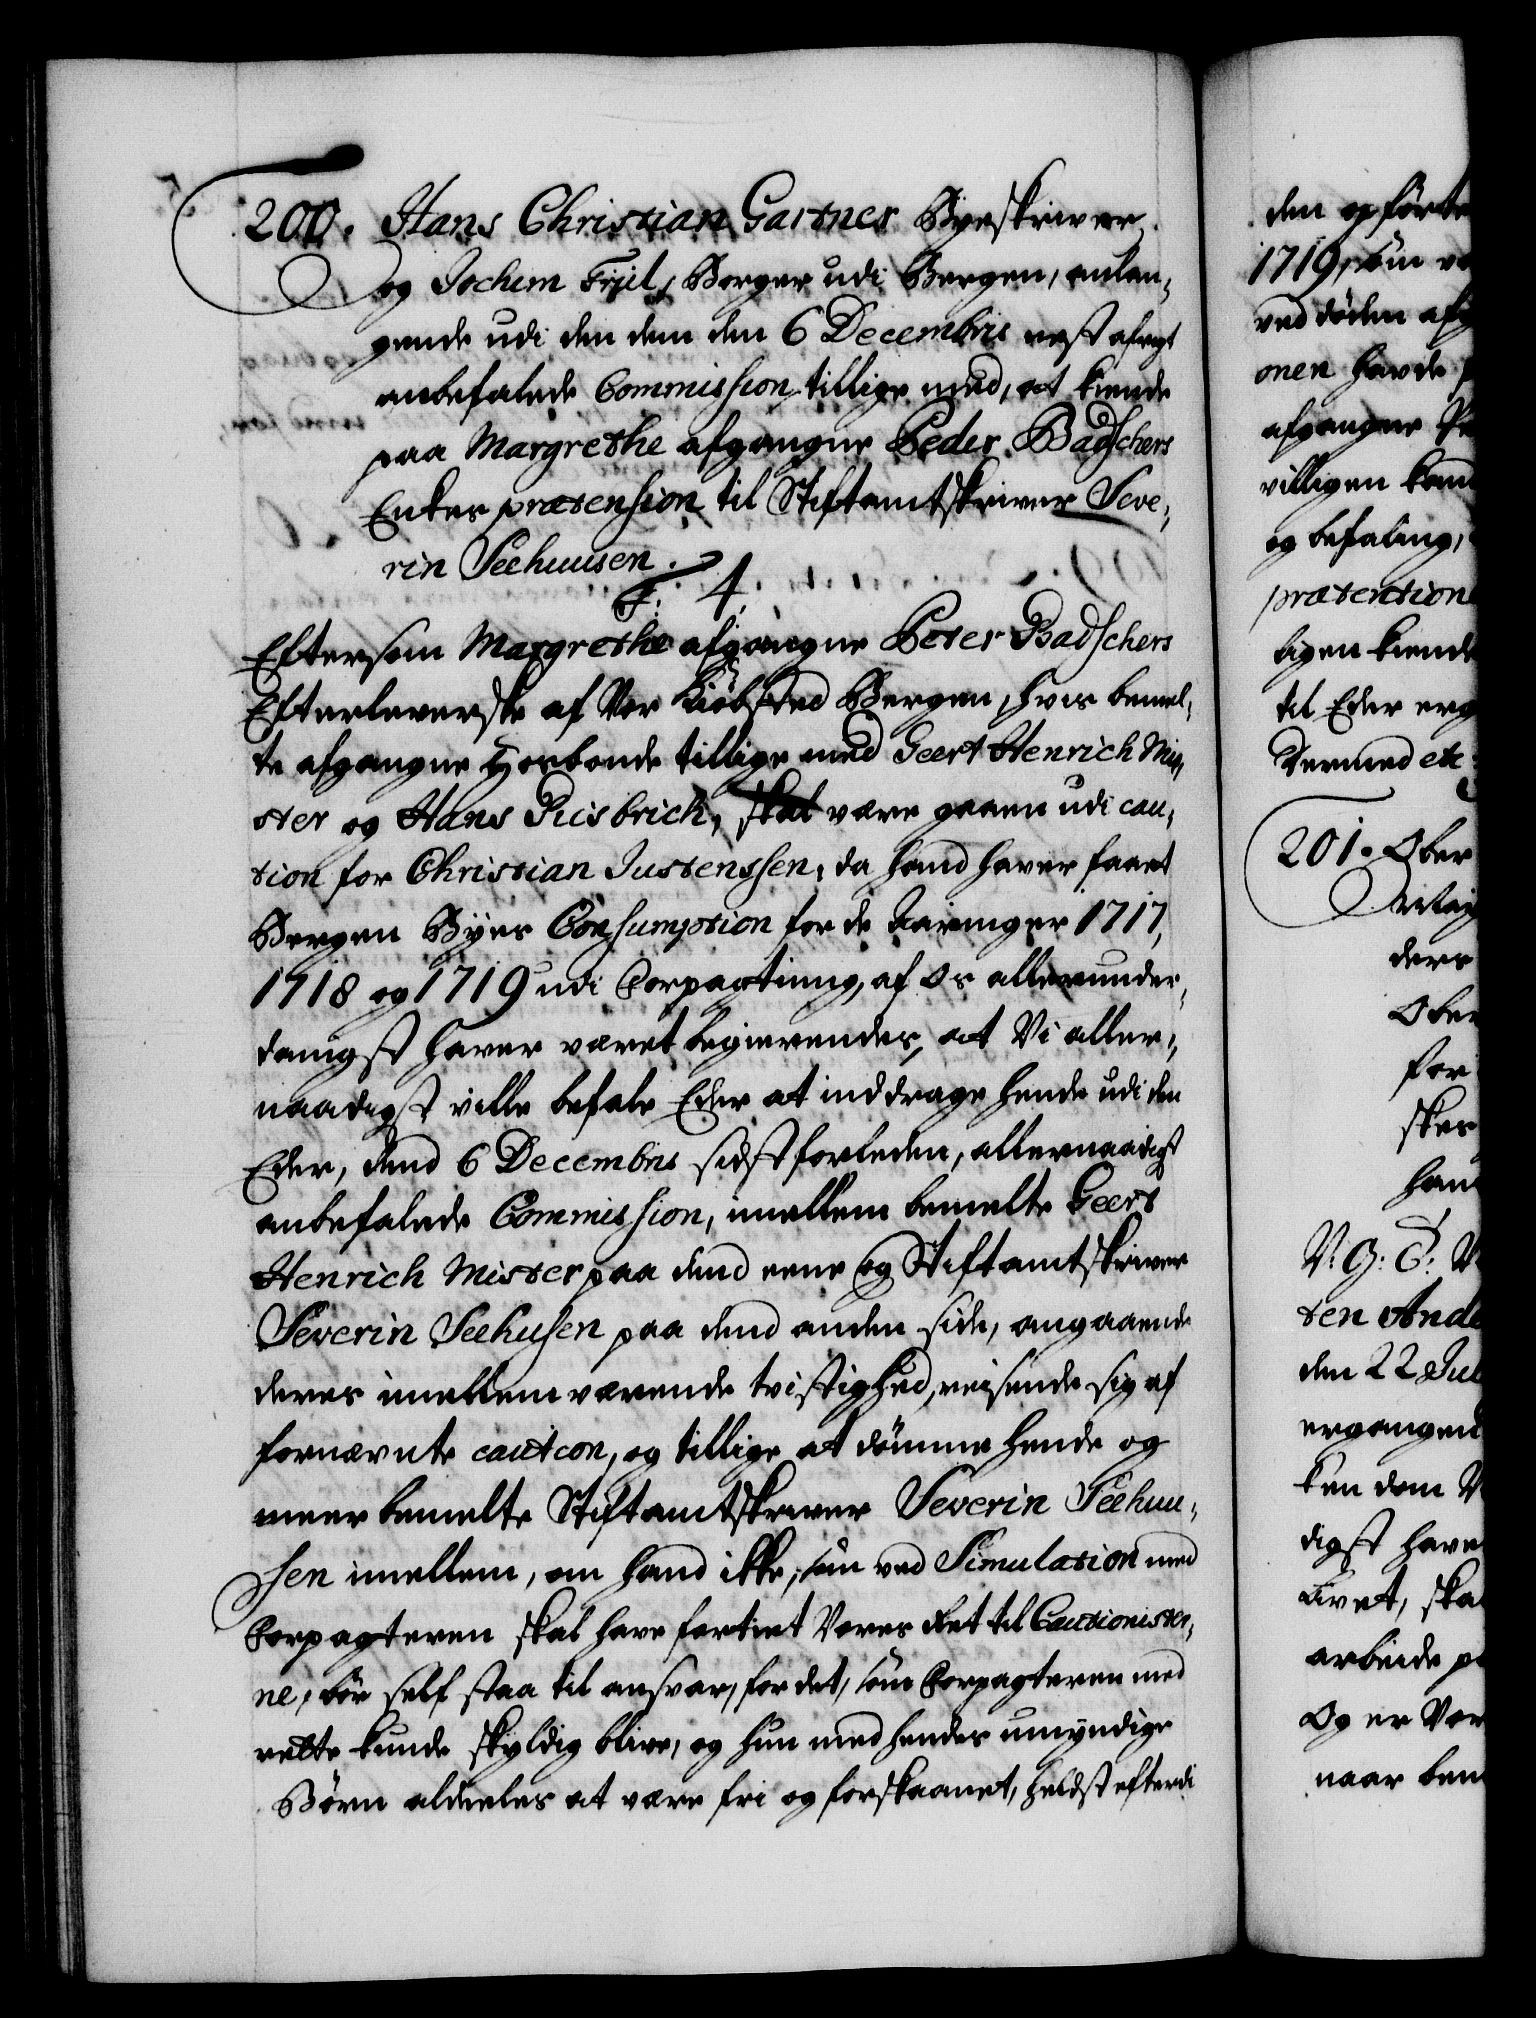 200. Hans Christian Gartner Byeskriver
og Jochem Friil, Borger udi Bergen, anlan¬
gende udi den dem den 6 Decembris nest afvigt
anbefalede Commission tillige med, at kiende
paa Margrethe afgangne Peder Badschers
Enkes prætension til Stiftamtskriver Seve¬
rin Seehuusen.
F. 4.
Eftersom Margrethe afgangne Peter Badschers
Efterleverske af Vor Kiøbsted Bergen, hvis bemel¬
te afgangne Hosbonde tillige med Geert Henrich Mis¬
ter og Hans Riisbrich, skal være gaaen udi cau¬
tion for Christian Justenssen, da hand haver faaet
Bergen Byes Consumption for de Aaringer 1717,
1718 og 1719 udi Forpagtning, af Os allerunder¬
danigst haver været begierendes, at Vi aller¬
naadigst ville befale Eder at inddrage hende udi den
Eder, dend 6 Decembris sidst forleden, allernaadigst
anbefalede Commission, imellem bemelte Geert
Henrich Mister paa dend eene og Stiftamtskriver
Severin Seehusen paa dend anden side, angaaende
deres imellem værende tvistighed, reisende sig af
fornævnte caution, og tillige at dømme hende og
meer bemelte Stiftamtskriver Severin Seehuu¬
sen imellem, om hand ikke, som ved Simulation med
Forpagteren skal have fortiet Vores Ret til Cautionister¬
ne, bør self staa til ansvar, for det, som Forpagteren med
rette kunde skyldig blive, og hun med hendes umyndige
Børn aldeeles at være fri og forskaanet, heldst efterdi
den opførte
1719, som
ved døden
onen havde
afgangne
villigen
og befaling,
prætention
ligen kiende
til Eder
Dermed etc
201. Ober
ders
Ober
for
V: G: T: V
ten Ande
den 22 Jul
ergangen
ken dem
digst have
Livet, skal
arbeide
Og er Vor
naar bem